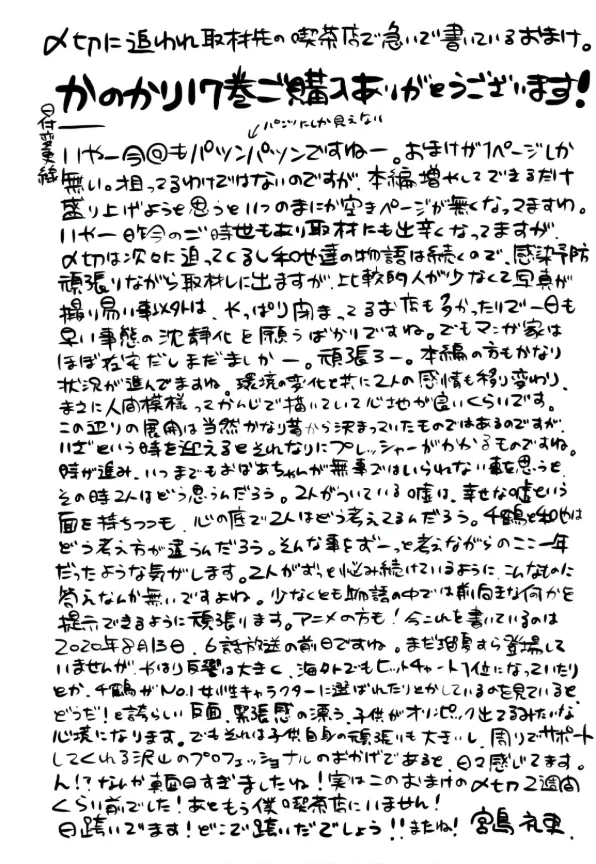 〆切に追われ取材先の喫茶店で急いで書いているおまけ。
かのかり17巻ご購入ありがとうございます!
日付変更線
↙パンツにしか見えない
いやー今回もパツンパツンですねー。おまけが1ページしか
無い。狙ってるわけではないのですが、本編増やしてできるだけ
盛り上げようと思うといつのまにか空きページが無くなってますわ。
いやー昨今のご時世もあり取材にも出辛くなってますが、
〆切は次々に迫ってくるし和也達の物語は続くので、感染予防
頑張りながら取材しに出ますが、比較的人が少なくて写真が
撮り易い事以外は、やっぱり閉まってるお店も多かったりで一日も
早い事態の沈静化を願うばかりですね。でもマンガ家は
ほぼ在宅だしまだましかー。頑張ろー。本編の方もかなり
状況が進んでますね。環境の変化と共に2人の感情も移り変わり、
まさに人間模様ってかんじで描いていて心地が良いくらいです。
この辺りの展開は当然かなり昔から決まっていたものではあるのですが、
いざという時を迎えるとそれなりにプレッシャーがかかるものですね。
時が進み、いつまでもおばあちゃんが無事ではいられない事を思うと、
その時2人はどう思うんだろう。2人がついている嘘は、幸せな嘘という
面を持ちつつも、心の底で2人はどう考えてるんだろう。千鶴と和也は
どう考え方が違うんだろう。そんな事をずーっと考えながらのここ一年
だったような気がします。2人がずっと悩み続けているように、こんなものに
答えなんか無いですよね。少なくとも物語の中では前向きな何かを
提示できるように頑張ります。アニメの方も!今これを書いているのは
2020年8月13日、6話放送の前日ですね。まだ瑠夏すら登場して
いませんが、やはり反響は大きく、海外でもヒットチャート1位になっていたり
とか、千鶴がNo.1女性キャラクターに選ばれたりとかしているのを見ていると、
どうだ!と誇らしい反面、緊張感の漂う、子供がオリンピック出てるみたいな
心境になります。でもそれは子供自身の頑張りも大きいし、周りでサポート
してくれる沢山のプロフェッショナルのおかげであると、日々感じてます。
ん!?なんか真面目すぎましたね!実はこのおまけの〆切2週間
くらい前でした!あともう僕喫茶店にいません!
日跨いでます!どこで跨いだでしょう!!またね! 宮島礼吏.